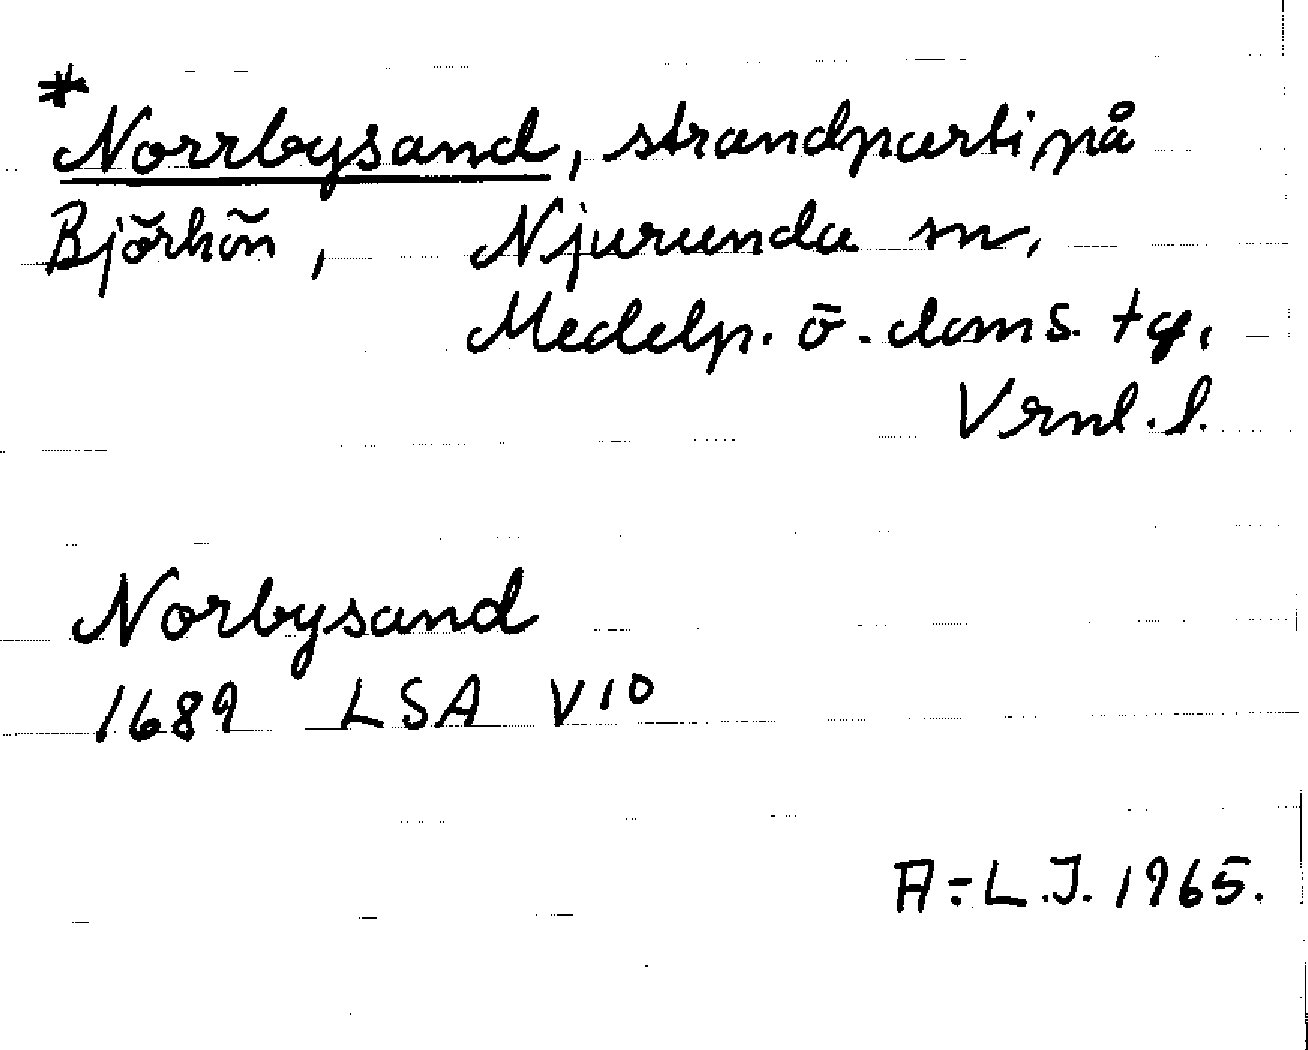 *
Norrbysand, strandparti på
Björkön, Njurunda sn,
Medelp. ö. doms. tg,
Vrnl. l.
Norbysand
1689 LSA V10
A.-L.J. 1965.